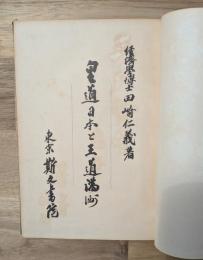 経済学博士 田崎仁義著
皇道日本と王道満洲
東京 斯文書院